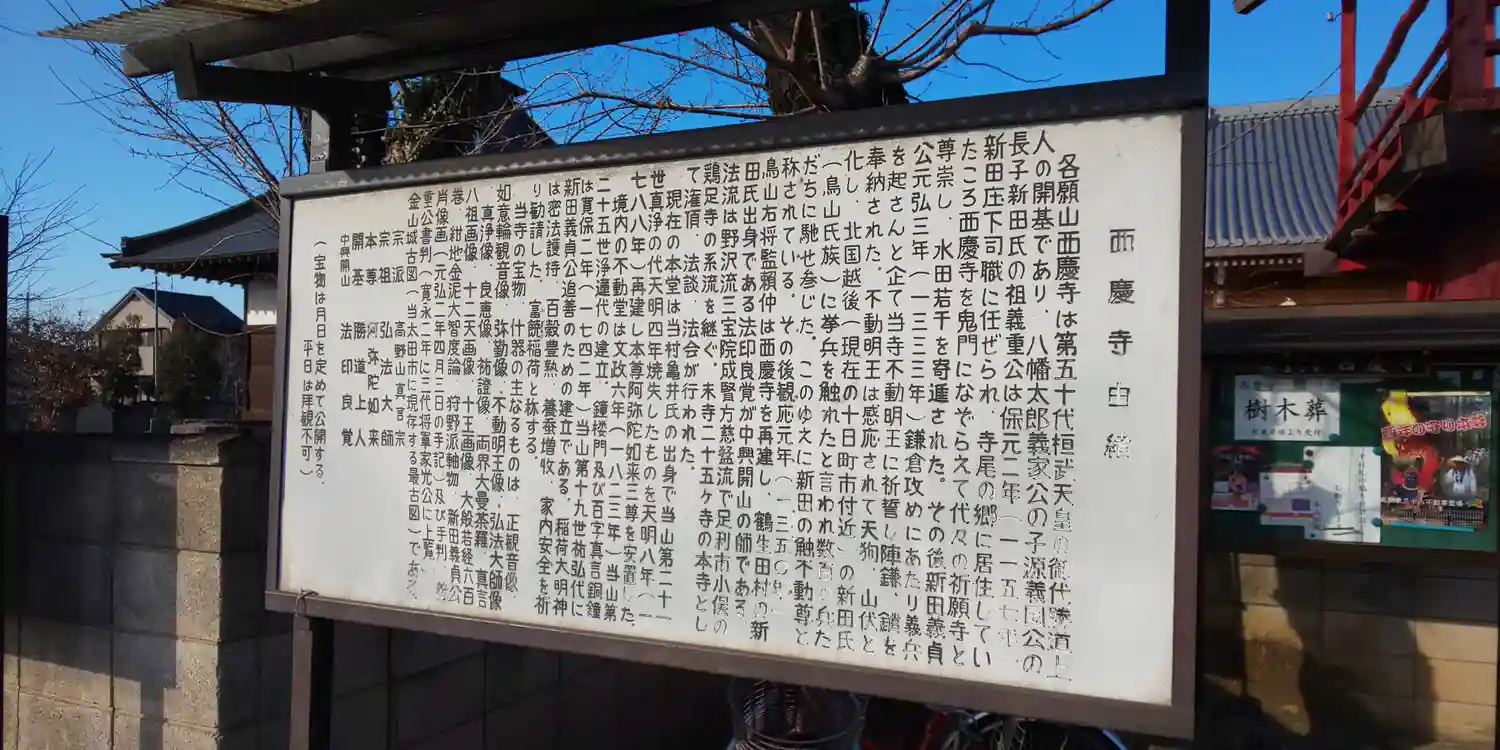 西慶寺由縁
各願山西慶寺は第五十代桓武天皇の御代勝道上
人の開基であり、八幡太郎義家公の子源義国公の
長子新田氏の祖義重公は保元二年（一一五七年）、
新田庄下司職に任ぜられ、寺尾の郷に居住してい
たころ西慶寺を鬼門になぞらえて代々の祈願寺と
尊崇し、水田若干を寄進された。その後新田義貞
公元弘三年（一三三三年）鎌倉攻めにあたり義兵
を起さんと企て当寺不動明王に祈誓し陣鎌、鏡を
奉納された。不動明王は感応されて天狗、山伏と
化し、北国越後（現在の十日町市付近）の新田氏
（鳥山氏族）に挙兵を触れたと言われ数百の兵た
だちに馳せ参じた。このゆえに新田の触不動尊と
称されている。その後観応元年（一三五〇年）
鳥山右将監頼仲は西慶寺を再建し、鶴生田村の新
田氏出身である法印良覚が中興開山の師である。
法流は野沢流三宝院成賢方慈猛流で足利市小俣の
鶏足寺の系流を継ぐ。末寺二十五ヶ寺の本寺とし
て潅頂、法談、法会が行われた。
現在の本堂は当村亀井氏の出身で当山第二十一
世真浄の代天明四年焼失したものを天明八年（一
七八八年）再建し本尊阿弥陀如来三尊を安置した。
境内の不動堂は文政六年（一八二三年）当山第
二十五世浄遍代の建立。鐘楼門及び百字真言銅鐘
は寛保二年（一七四二年）当山第十九世祐弘代に
新田義貞公追善のための建立である。稲荷大明神
は密法護持、百穀豊熟、養蚕増収、家内安全を祈
り勧請した。富饒稲荷と称する。
当寺の宝物、什器の主なるものは、正観音像、
如意輪観音像、弥勒像、不動明王像、弘法大師像
、真浄像、良恵像、祐證像、両界大曼荼羅、真言
八祖画像、十二天画像、十王画像、大般若経六百
巻、紺地金泥大智度論、狩野派軸物、新田義貞公
肖像画（元弘二年四月三日の寺記）及び手判、義
重公書判（寛永二年に三代将軍家光公に上覧）、
金山城古図（当太田市に現存する最古図）である。
宗派 高野山真言宗
宗祖 弘法大師
本尊 阿弥陀如来
開基 勝道上人
中興開山 法印良覚
（宝物は月日を定めて公開する。
平日は拝観不可）
樹木葬